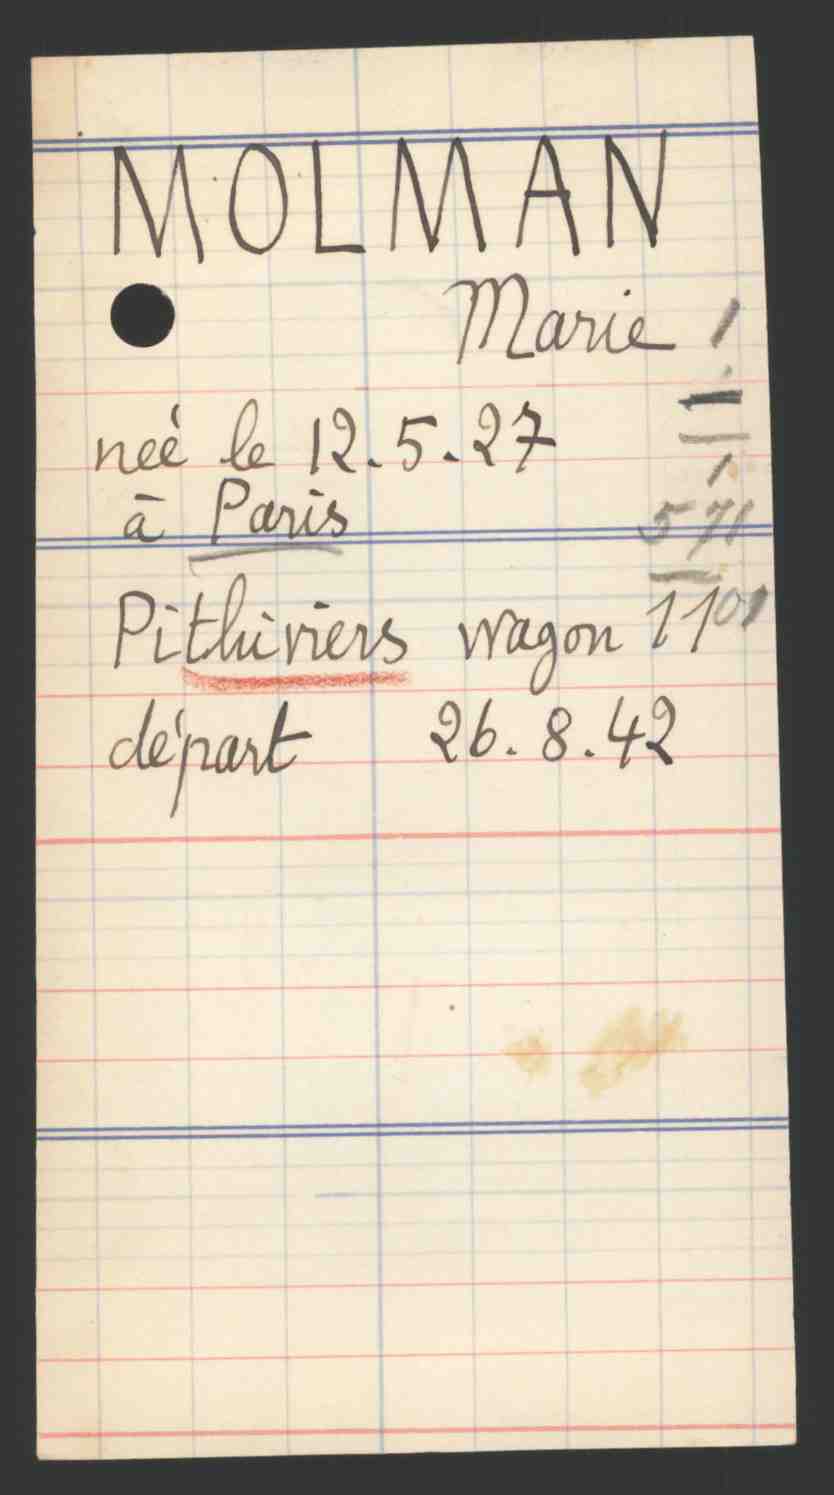 MOLMAN
Marie
neé le 12.5.27
à Paris
571
Pithiviers wagon 11
départ 26.8.42